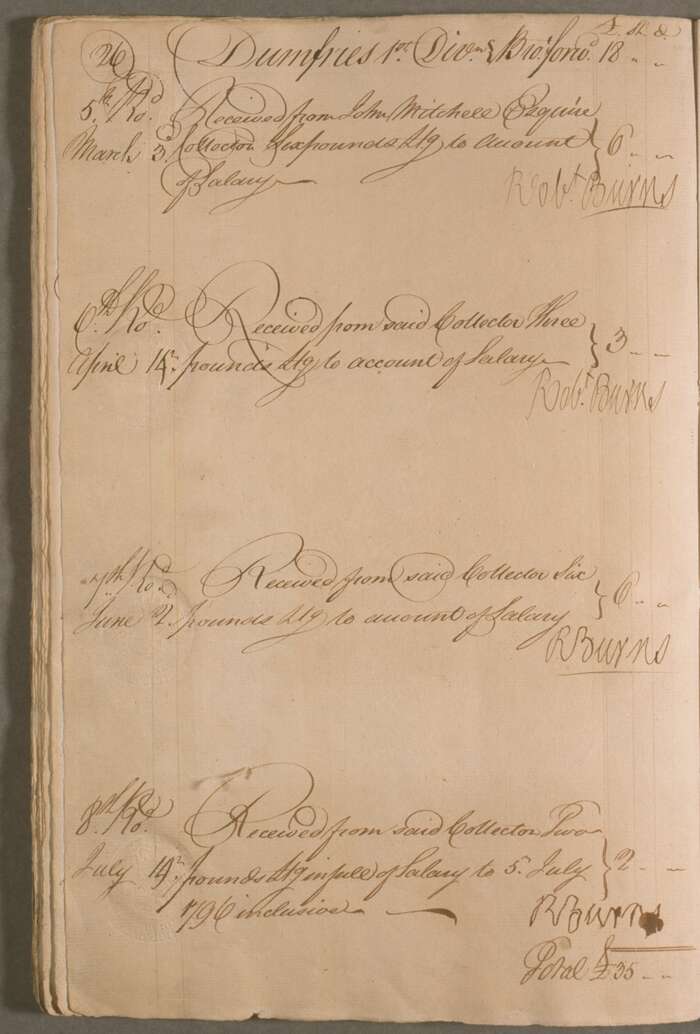 26 Dumfries 1st Divon Bro.t forwd. £ sh. d.
18 " "
5th Rod. Received from John Mitchell Esquire
March 3d Collector Six pounds Stg to account } 6 " "
of Salary
Robt. Burns
6th Rod. Received from said Collector Three
April 14th. pounds Stg to account of Salary } 3 " "
Robt. Burns
7th Rod. Received from said Collector Six
June 2. pounds Stg to account of Salary } 6 " "
R Burns
8th Rod. Received from said Collector Two
July 14th. pounds Stg in full of Salary to 5. July } 2 " "
1796 inclusive
R Burns
Total £ 35 " "